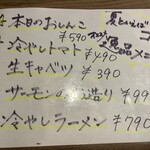 本日のおしんこ
¥590
夏といえば
冷やしトマト
¥490
逸品メニ
生キャベツ
¥390
サーモンの
造り
¥99
冷やしラーメン
¥790